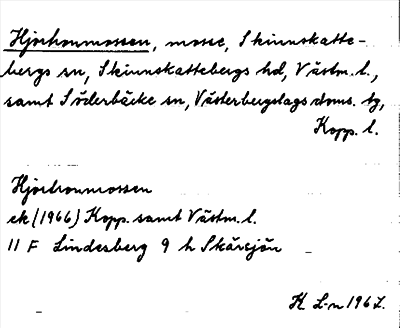 Hjorhonmossen, mosse, Skinnskatte-
bergs sn, Skinnskattebergs hd, Västm. l.,
samt Söderbäcke sn, Västerbergslags doms. tg,
Kopp. l.
Hjorhonmossen
ek (1966) Kopp. samt Västm. l.
11 F Lindesberg 9 h Skärsjön
K L-n 1967.